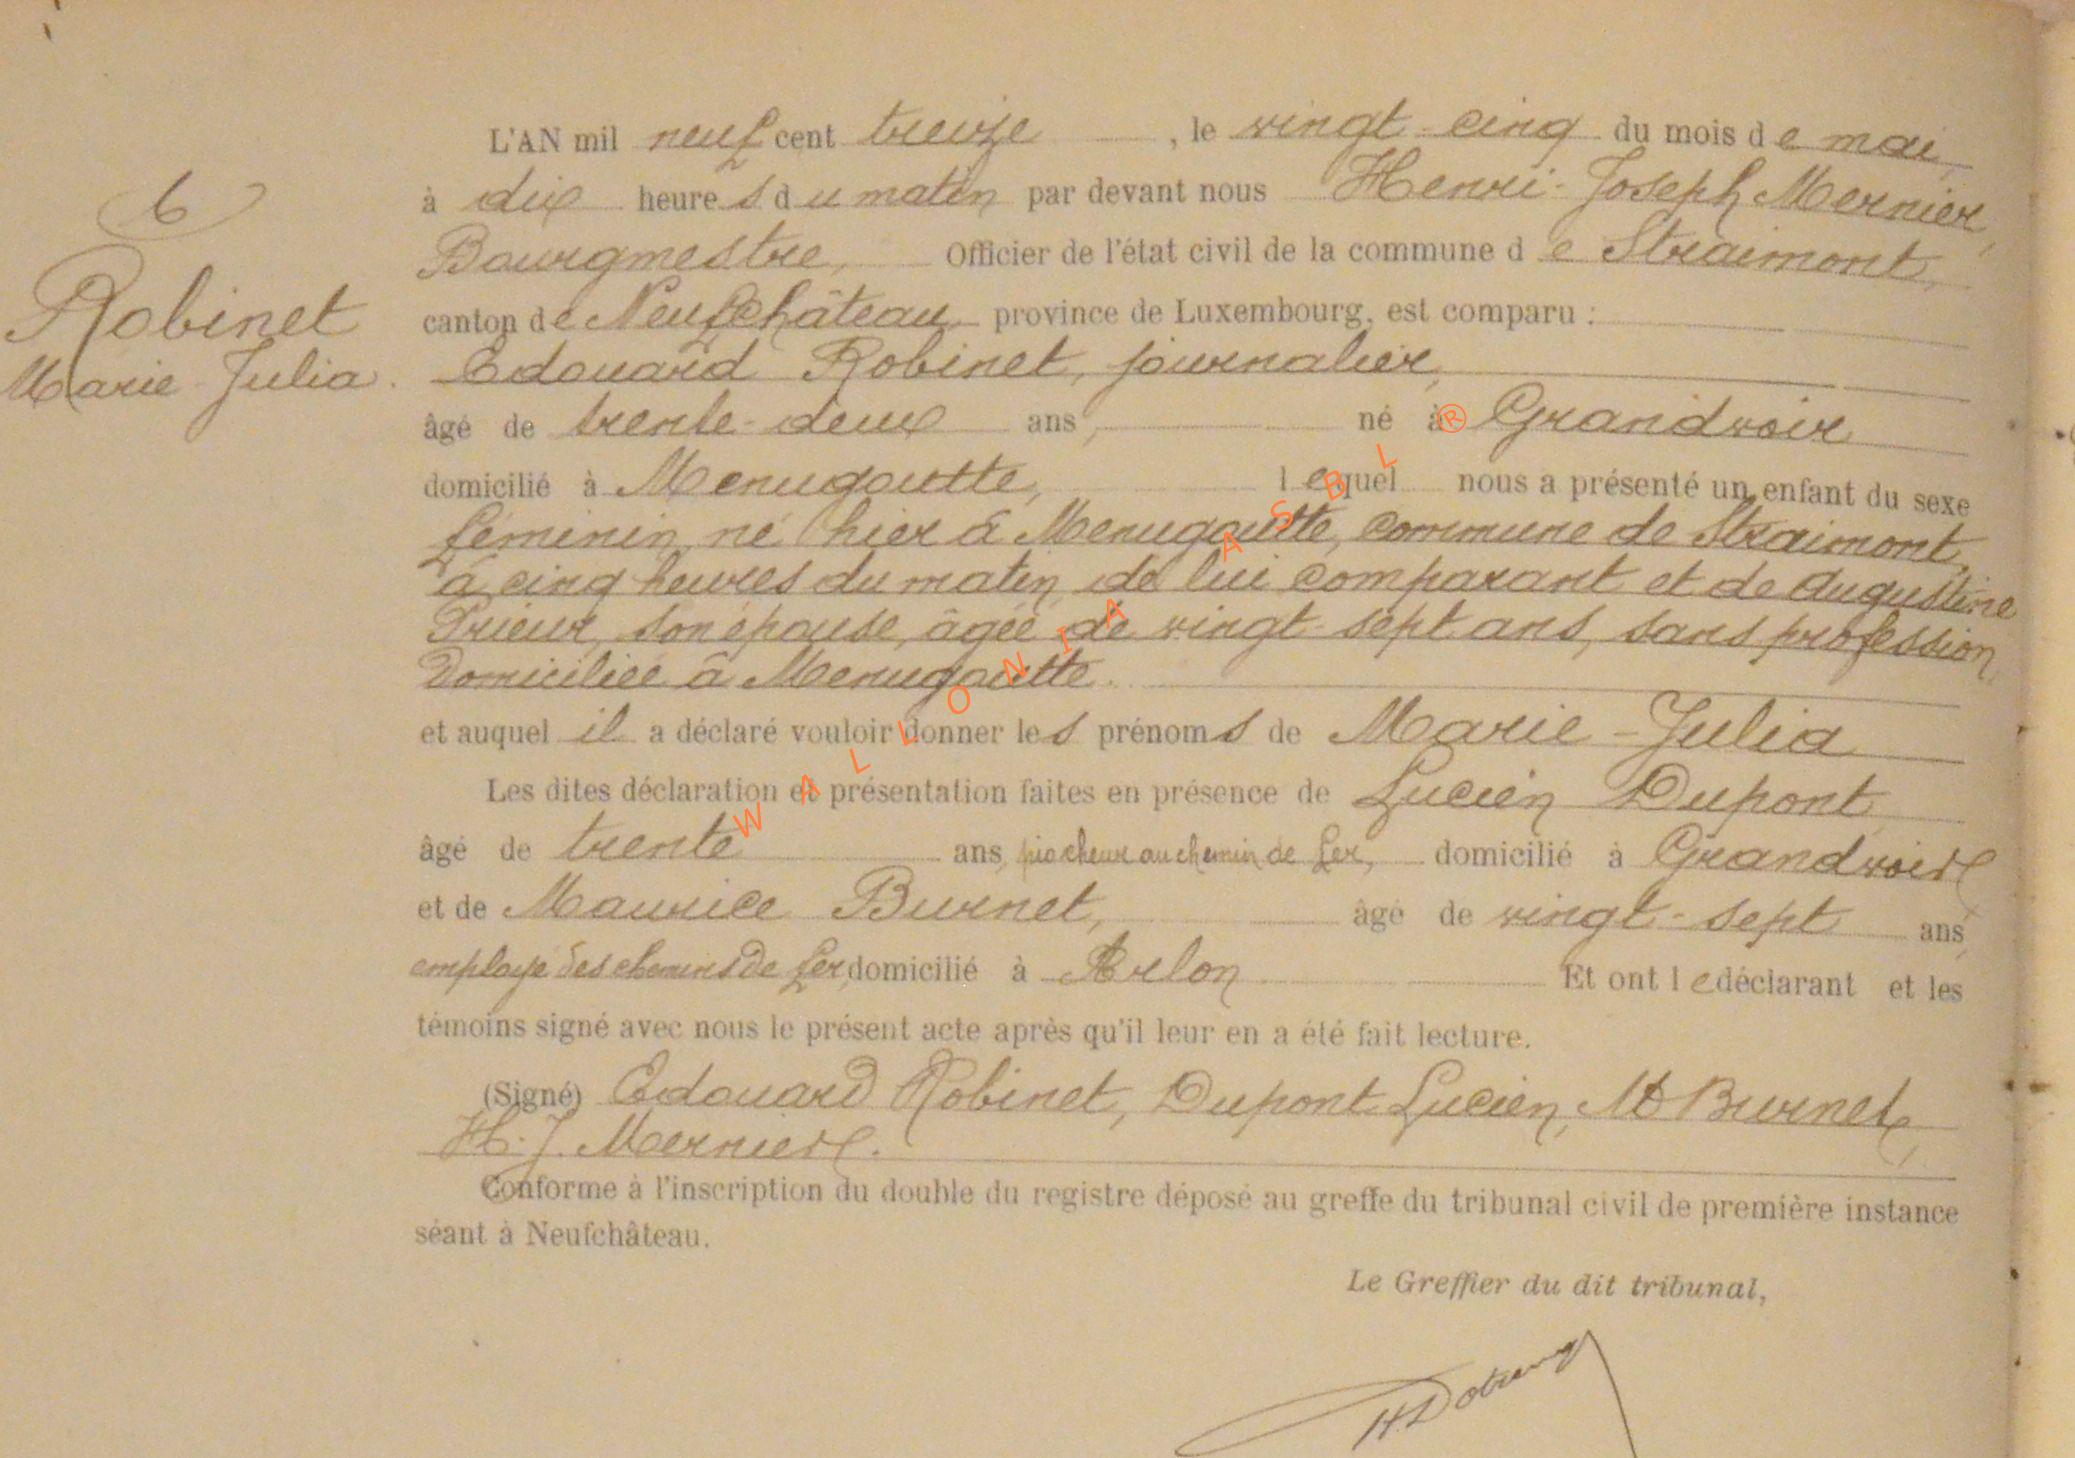 6
Robinet
Marie-Julia.
L'AN mil neuf cent treize, le vingt-cinq du mois de mai,
à dix heures du matin par devant nous Henri-Joseph Mernier,
Bourgmestre, Officier de l'état civil de la commune de Straimont,
canton de Neufchâteau, province de Luxembourg, est comparu :
Edouard Robinet, journalier,
âgé de trente-deux ans, né à Grandvoir
domicilié à Menugoutte, lequel nous a présenté un enfant du sexe
féminin, né hier à Menugoutte, commune de Straimont,
à cinq heures du matin, de lui comparant et de Augustine
Prieur, son épouse, âgée de vingt-sept ans, sans profession,
domiciliée à Menugoutte.
et auquel il a déclaré vouloir donner les prénoms de Marie-Julia
Les dites déclaration et présentation faites en présence de Lucien Dupont
âgé de trente ans, piocheur au chemin de fer, domicilié à Grandvoir
et de Maurice Burnet, âgé de vingt-sept ans,
employé des chemins de fer, domicilié à Arlon Et ont le déclarant et les
témoins signé avec nous le présent acte après qu'il leur en a été fait lecture.
(Signé) Edouard Robinet, Dupont Lucien, M Burnet,
H. J. Mernier.
Conforme à l'inscription du double du registre déposé au greffe du tribunal civil de première instance
séant à Neufchâteau.
Le Greffier du dit tribunal,
WALLONIA ASBL ®